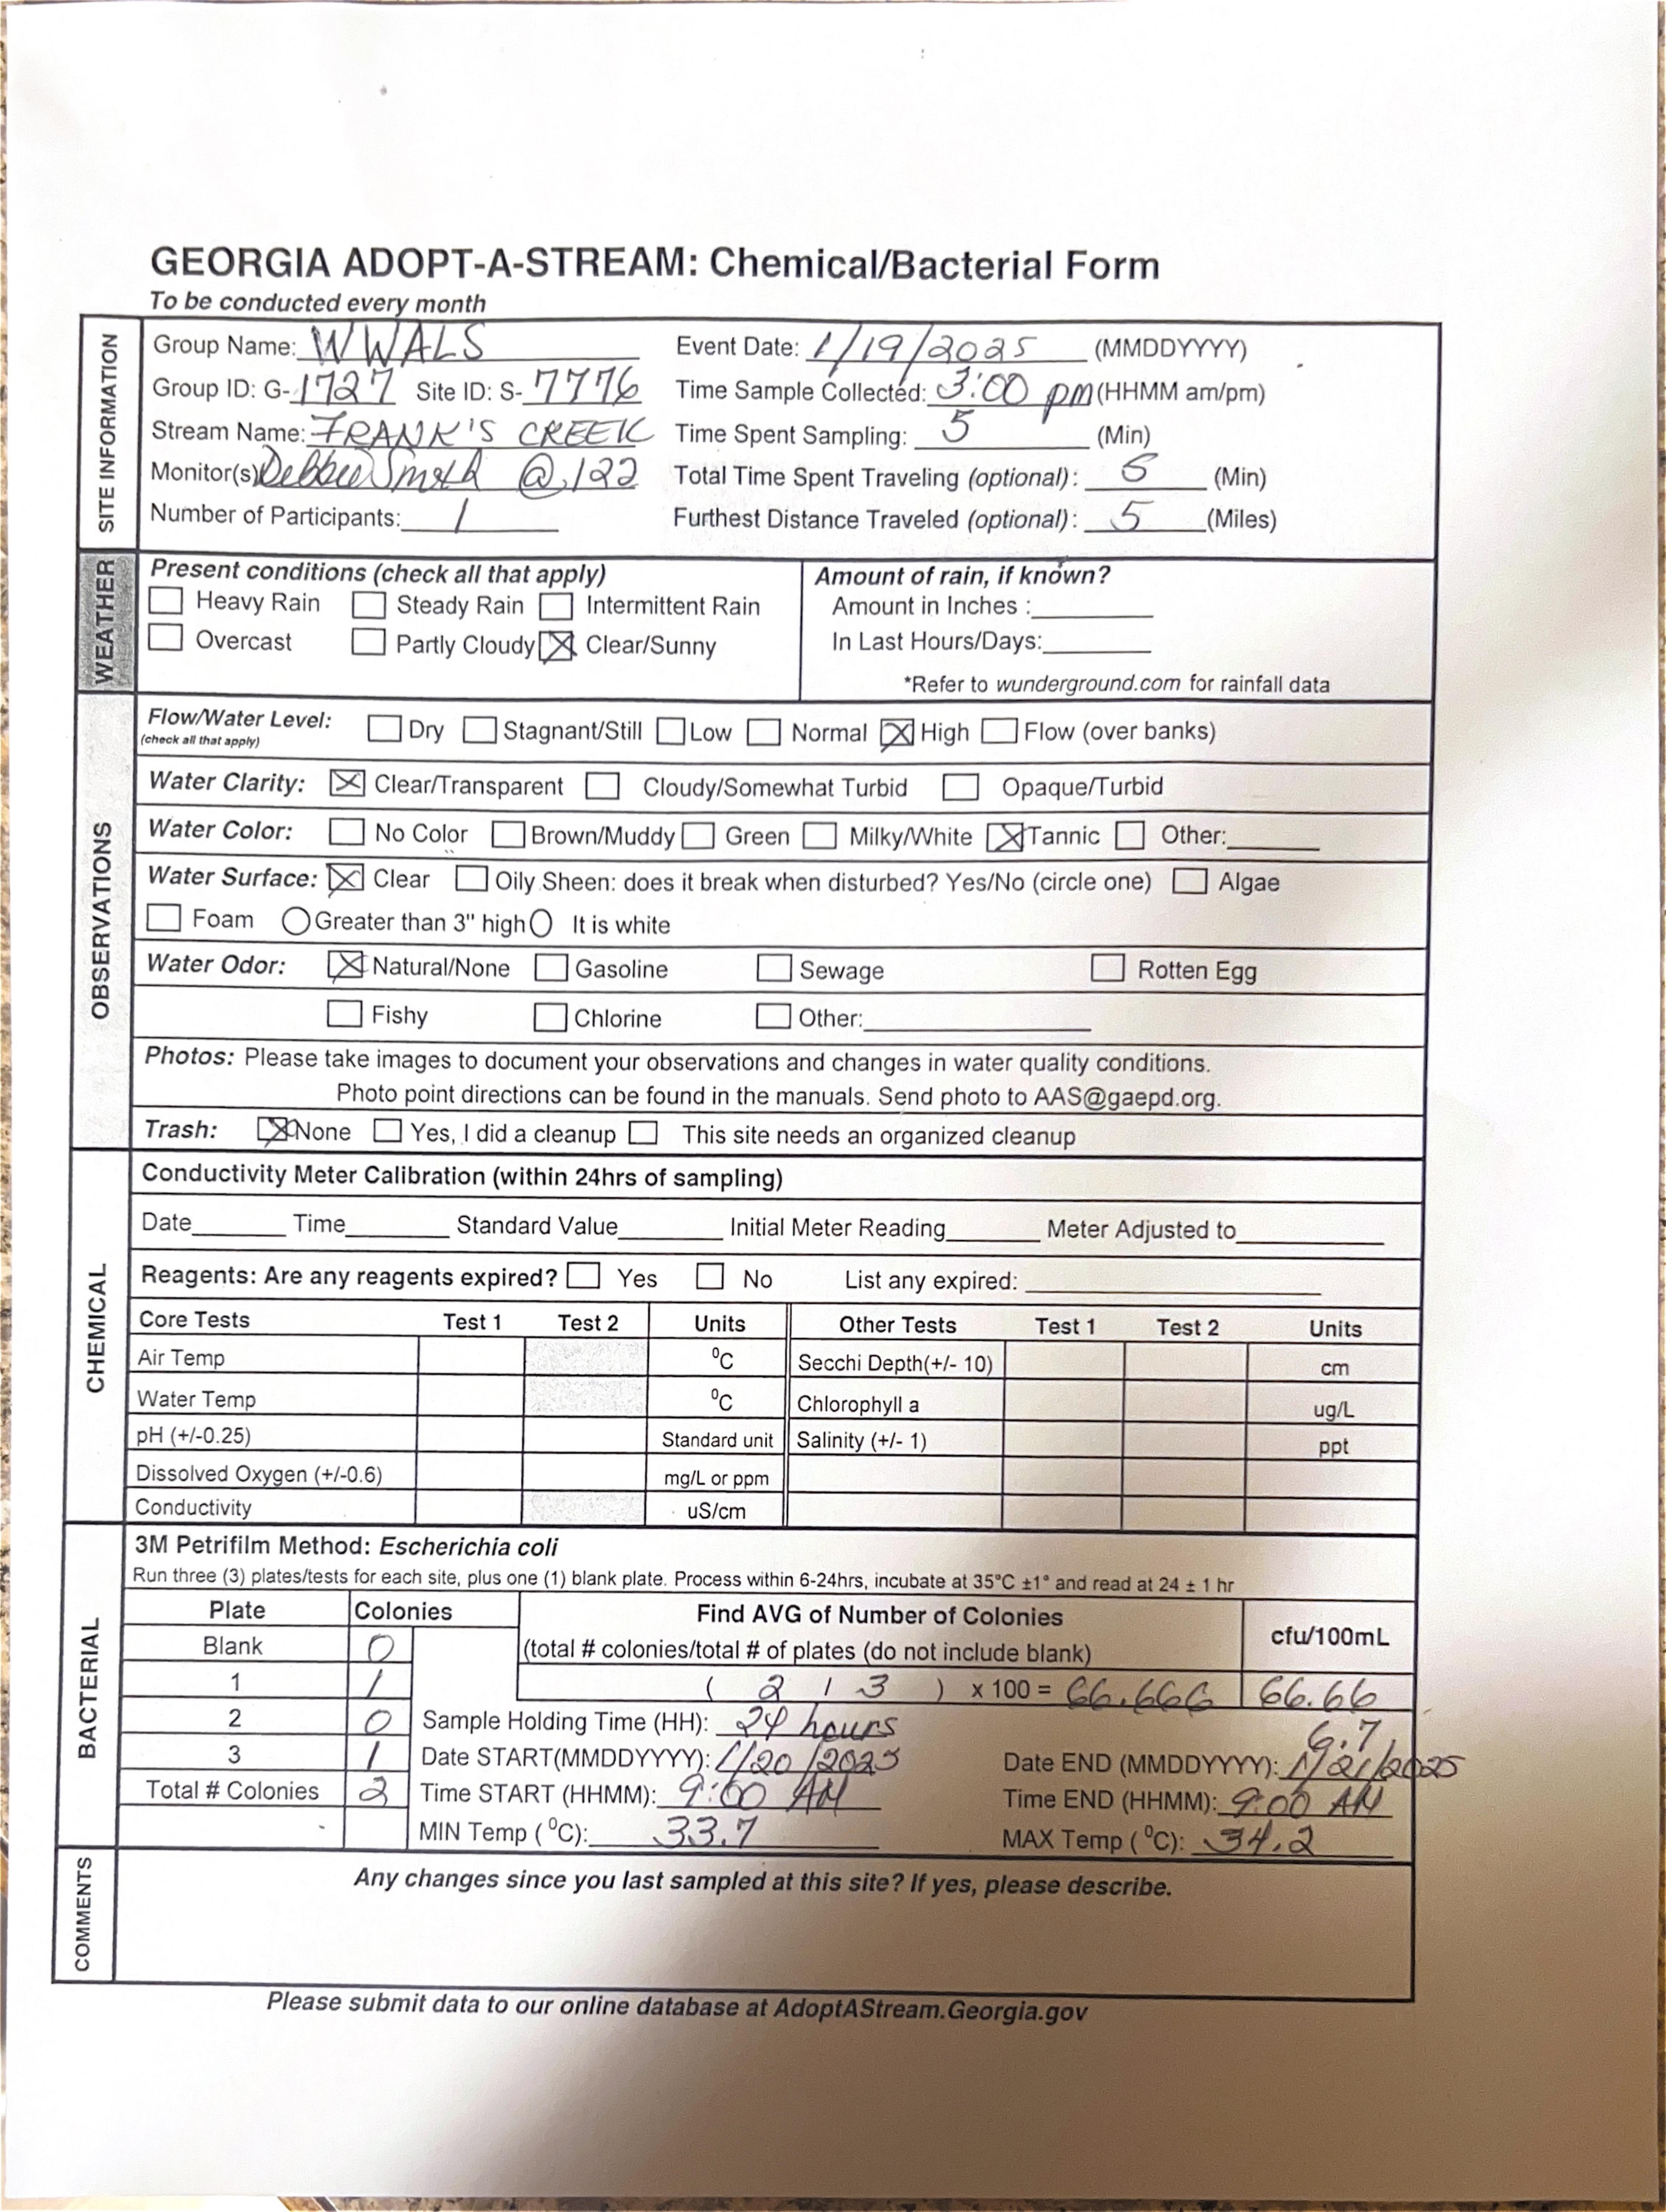 GEORGIA ADOPT-A-STREAM: Chemical/Bacterial Form
To be conducted every month
SITE INFORMATION
Group Name: WWALS Event Date: 1/19/2025 (MMDDYYYY)
Group ID: G-1727 Site ID: S-7776 Time Sample Collected: 3:00 pm (HHMM am/pm)
Stream Name: FRANK'S CREEK Time Spent Sampling: 5 (Min)
Monitor(s) Debbie Smith @ 122 Total Time Spent Traveling (optional): 5 (Min)
Number of Participants: 1 Furthest Distance Traveled (optional): 5 (Miles)
WEATHER
Present conditions (check all that apply) Amount of rain, if known?
Heavy Rain Steady Rain Intermittent Rain Amount in Inches :
Overcast Partly Cloudy Clear/Sunny In Last Hours/Days:
*Refer to wunderground.com for rainfall data
OBSERVATIONS
Flow/Water Level: Dry Stagnant/Still Low Normal High Flow (over banks)
(check all that apply)
Water Clarity: Clear/Transparent Cloudy/Somewhat Turbid Opaque/Turbid
Water Color: No Color Brown/Muddy Green Milky/White Tannic Other:
Water Surface: Clear Oily Sheen: does it break when disturbed? Yes/No (circle one) Algae
Foam Greater than 3" high It is white
Water Odor: Natural/None Gasoline Sewage Rotten Egg
Fishy Chlorine Other:
Photos: Please take images to document your observations and changes in water quality conditions.
Photo point directions can be found in the manuals. Send photo to AAS@gaepd.org.
Trash: None Yes, I did a cleanup This site needs an organized cleanup
CHEMICAL
Conductivity Meter Calibration (within 24hrs of sampling)
Date Time Standard Value Initial Meter Reading Meter Adjusted to
Reagents: Are any reagents expired? Yes No List any expired:
Core Tests Test 1 Test 2 Units Other Tests Test 1 Test 2 Units
Air Temp ⁰C Secchi Depth(+/- 10) cm
Water Temp ⁰C Chlorophyll a ug/L
pH (+/-0.25) Standard unit Salinity (+/- 1) ppt
Dissolved Oxygen (+/-0.6) mg/L or ppm
Conductivity uS/cm
BACTERIAL
3M Petrifilm Method: Escherichia coli
Run three (3) plates/tests for each site, plus one (1) blank plate. Process within 6-24hrs, incubate at 35°C ±1° and read at 24 ± 1 hr
Plate Colonies Find AVG of Number of Colonies cfu/100mL
Blank 0 (total # colonies/total # of plates (do not include blank)
1 1 ( 2 / 3 ) x 100 = 66.666 66.66
2 0 Sample Holding Time (HH): 24 hours 6.7
3 1 Date START(MMDDYYYY): 1/20/2025 Date END (MMDDYYYY): 1/21/2025
Total # Colonies 2 Time START (HHMM): 9:00 AM Time END (HHMM): 9:00 AM
MIN Temp (⁰C): 33.7 MAX Temp (⁰C): 34.2
COMMENTS
Any changes since you last sampled at this site? If yes, please describe.
Please submit data to our online database at AdoptAStream.Georgia.gov